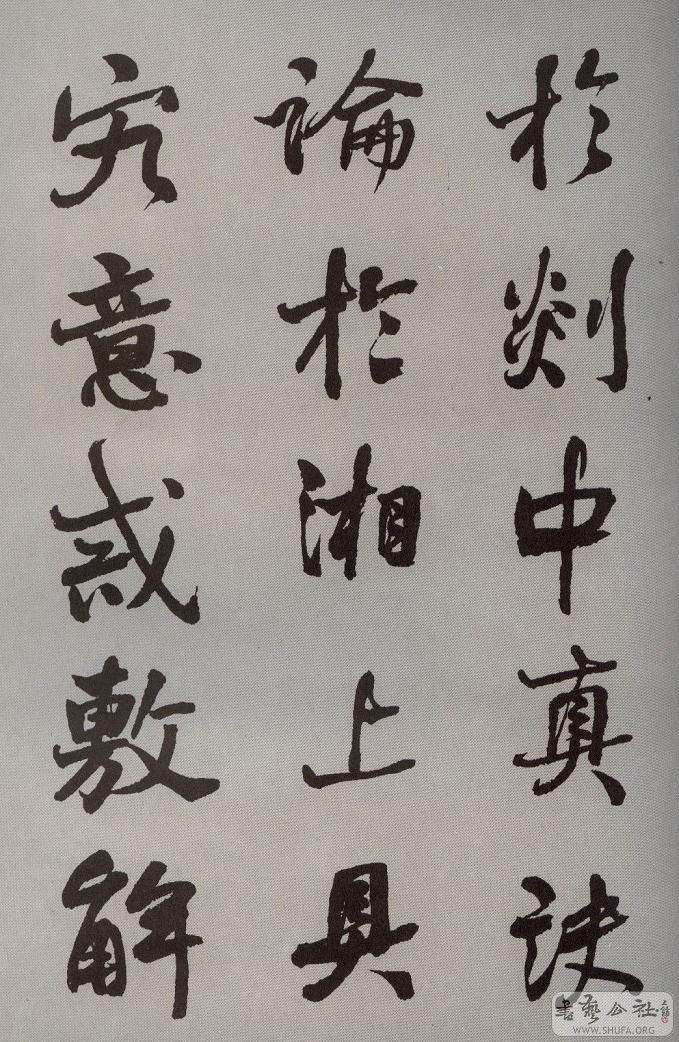 於剡中真訣
論於湘上具
究意戒敷解
書藝公社
WWW.SHUFA.ORG